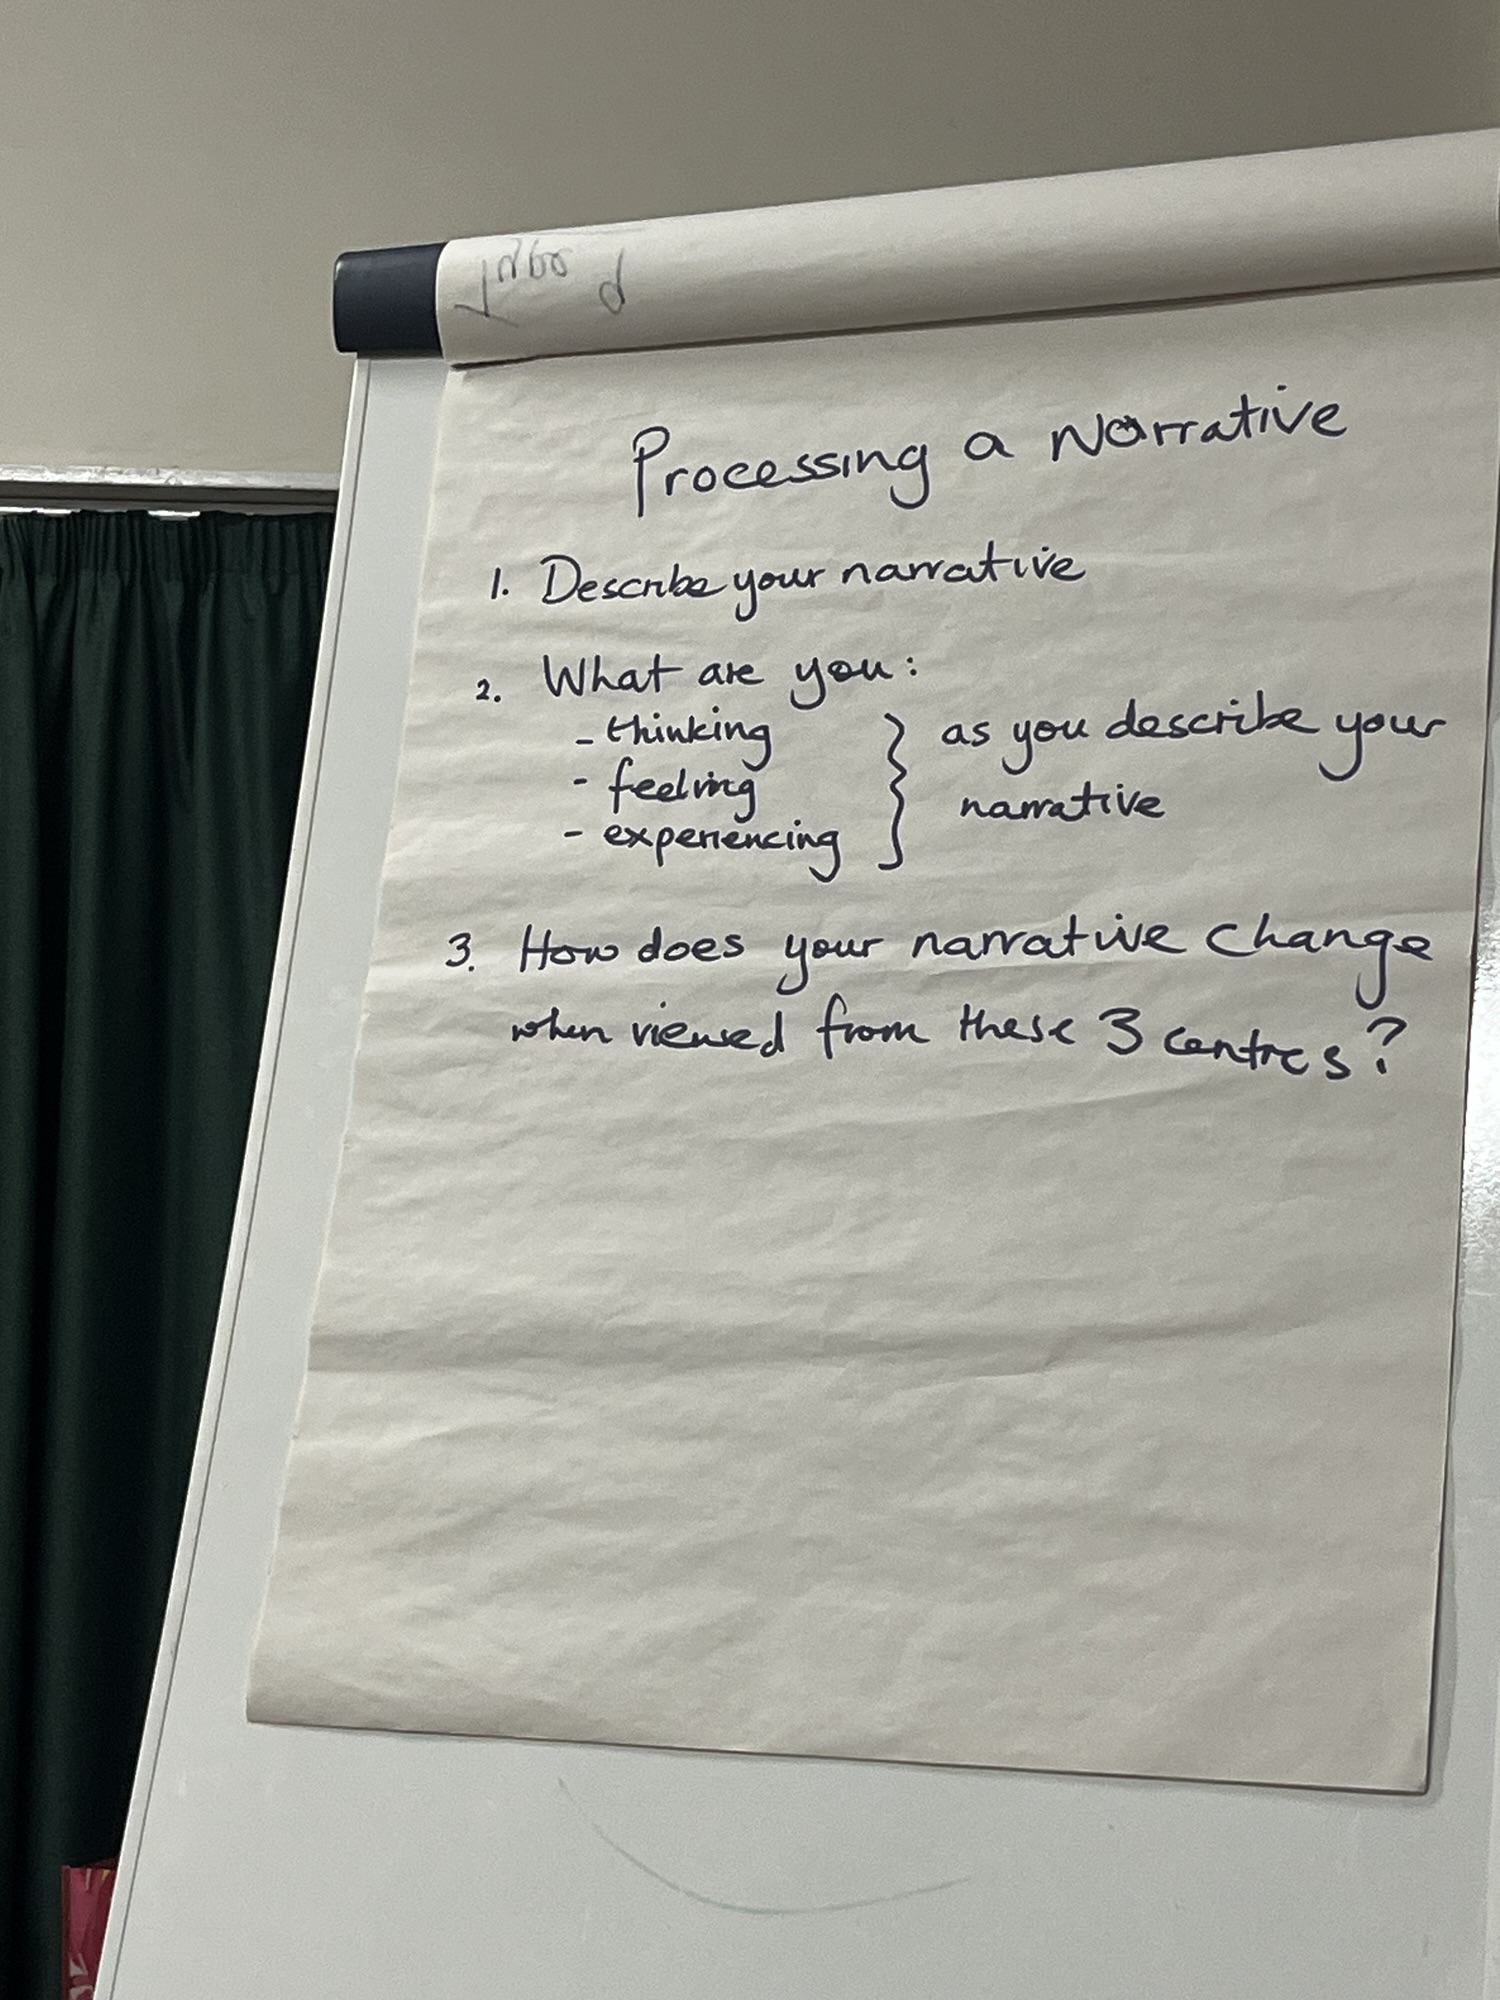 Processing a Narrative
1. Describe your narrative
2. What are you:
- thinking
- feeling
- experiencing
} as you describe your
narrative
3. How does your narrative change
when viewed from these 3 centres?